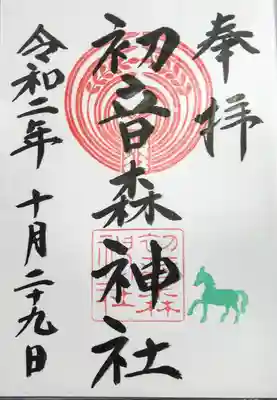 奉拝
初音森神社
令和二年 十月二十九日
初音森
神社